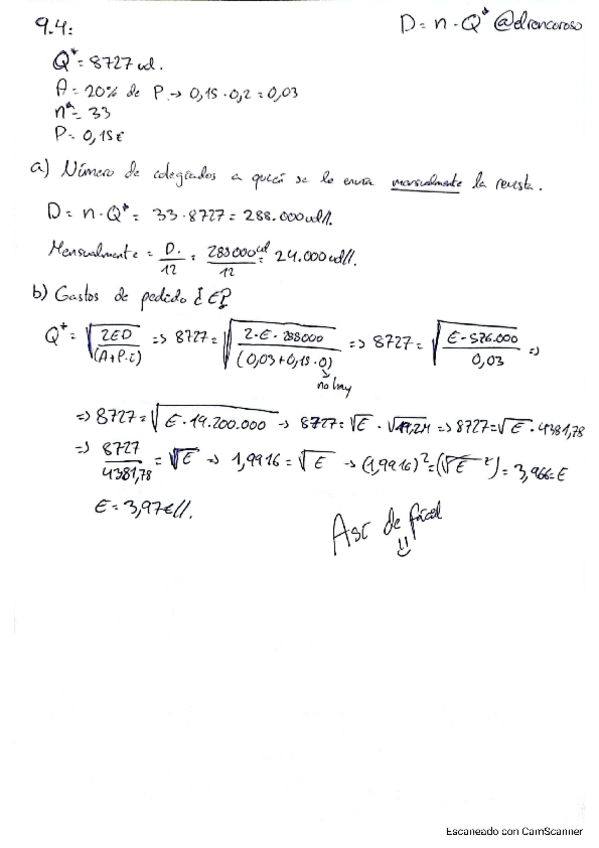 9.4:
D = n · Q* @elrencoroso
Q* = 8727 ud.
A = 20% de P → 0,15 · 0,2 = 0,03
n* = 33
P = 0,15€
a) Número de colegiados a quien se le envía mensualmente la revista.
D = n · Q* = 33 · 8727 = 288.000 ud//.
Mensualmente = D. / 12 = 288000 ud / 12 = 24.000 ud//.
b) Gastos de pedido ¿E?
Q* = √(2ED / (A+P·i)) => 8727 = √(2·E·288000 / (0,03+0,15·0)) => 8727 = √(E·576.000 / 0,03) =>
no hay
=> 8727 = √(E·19.200.000) → 8727 = √E · √19,2M => 8727 = √E · 4381,78
=> 8727 / 4381,78 = √E → 1,9916 = √E → (1,9916)² = (√E ²) = 3,966 = E
E = 3,97€//.
Así de fácil
Escaneado con CamScanner